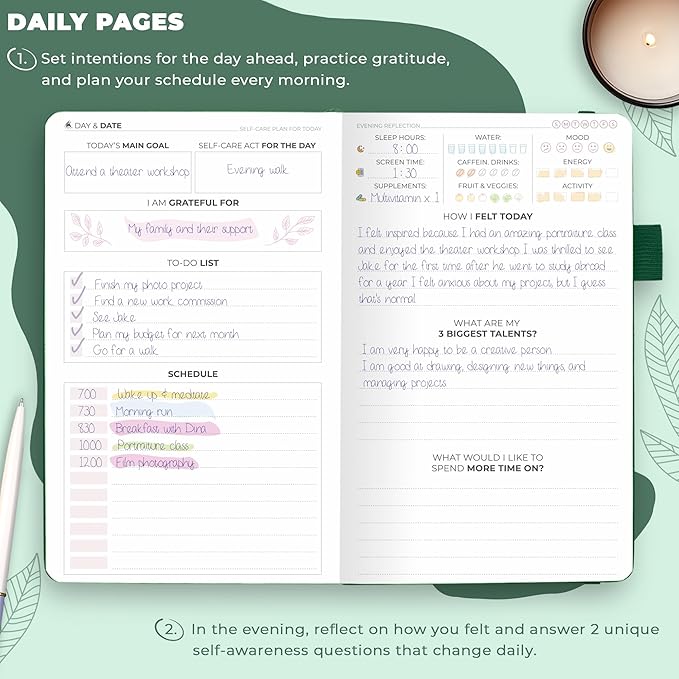 DAILY PAGES
1. Set intentions for the day ahead, practice gratitude,
and plan your schedule every morning.
DAY & DATE
SELF-CARE PLAN FOR TODAY
TODAY'S MAIN GOAL
SELF-CARE ACT FOR THE DAY
Attend a theater workshop
Evening walk
I AM GRATEFUL FOR
My family and their support
TO-DO LIST
Finish my photo project
Find a new work commission
See Jake
Plan my budget for next month
Go for a walk
SCHEDULE
7:00 Wake up & meditate
7:30 Morning run
8:30 Breakfast with Dina
10:00 Portraiture class
12:00 Film photography
EVENING REFLECTION
S M T W T F S
SLEEP HOURS:
8:00
SCREEN TIME:
1:30
SUPPLEMENTS:
Multivitamin x 1
WATER:
CAFFEIN. DRINKS:
FRUIT & VEGGIES:
MOOD
ENERGY
ACTIVITY
HOW I FELT TODAY
I felt inspired because I had an amazing portraiture class
and enjoyed the theater workshop. I was thrilled to see
Jake for the first time after he went to study abroad
for a year. I felt anxious about my project, but I guess
that's normal.
WHAT ARE MY
3 BIGGEST TALENTS?
I am very happy to be a creative person.
I am good at drawing, designing new things, and
managing projects.
WHAT WOULD I LIKE TO
SPEND MORE TIME ON?
2. In the evening, reflect on how you felt and answer 2 unique
self-awareness questions that change daily.